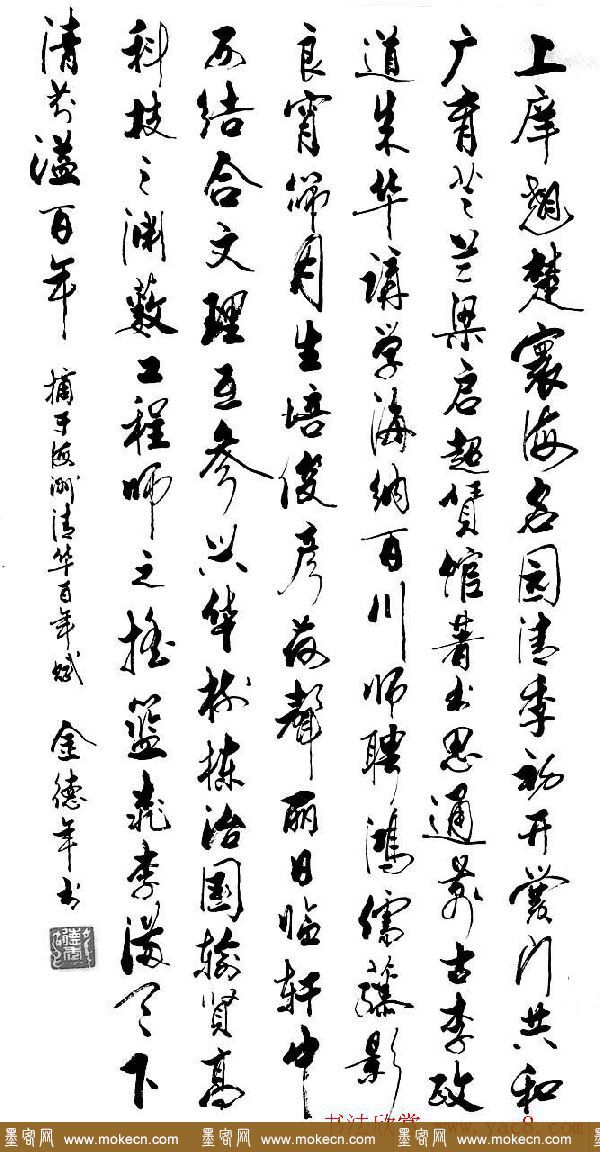 上庠翘楚寰海名园清季初开黉门共和
广育芝兰梁启超赁馆著书思通万古李政
道朱华讲学海纳百川师聘鸿儒藤影
良宵霁月生培俊彦荷聲丽日临轩中
西结合文理互参兴华树栋治國输贤高
科技之渊薮工程师之摇篮桃李满天下
清芬溢百年 摘于海洲清华百年赋 金德年书
书法欣赏 www.yac8.com
墨客网 www.mokecn.com 墨客网 www.mokecn.com 墨客网 www.mokecn.com